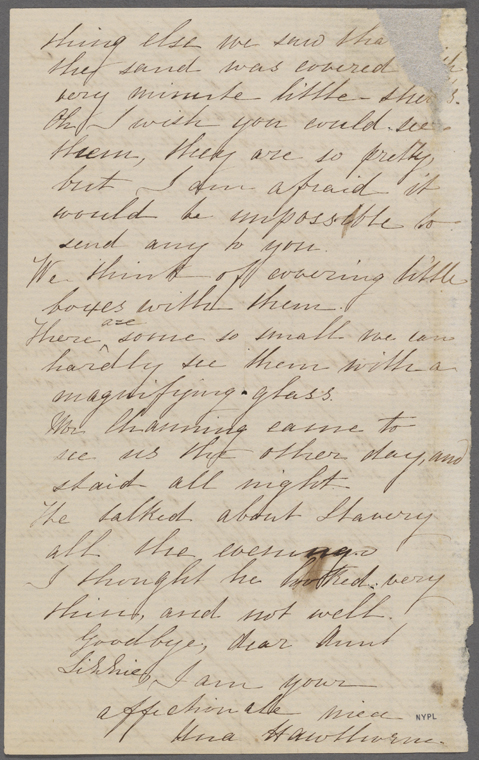 thing else we saw tha
the sand was covered
very minute little shells.
Oh, I wish you could see
them, they are so pretty,
but I am afraid it
would be impossible to
send any to you.
We think of covering little
boxes with them.
There are some so small we can
hardly see them with a
magnifying-glass
Mr Channing came to
see us the other day, and
staid all night
He talked about Slavery
all the evening.
I thought he looked very
thin, and not well.
Goodbye, dear Aunt
Lizzie, I am your
affectionate niece
Una Hawthorne.
NYPL